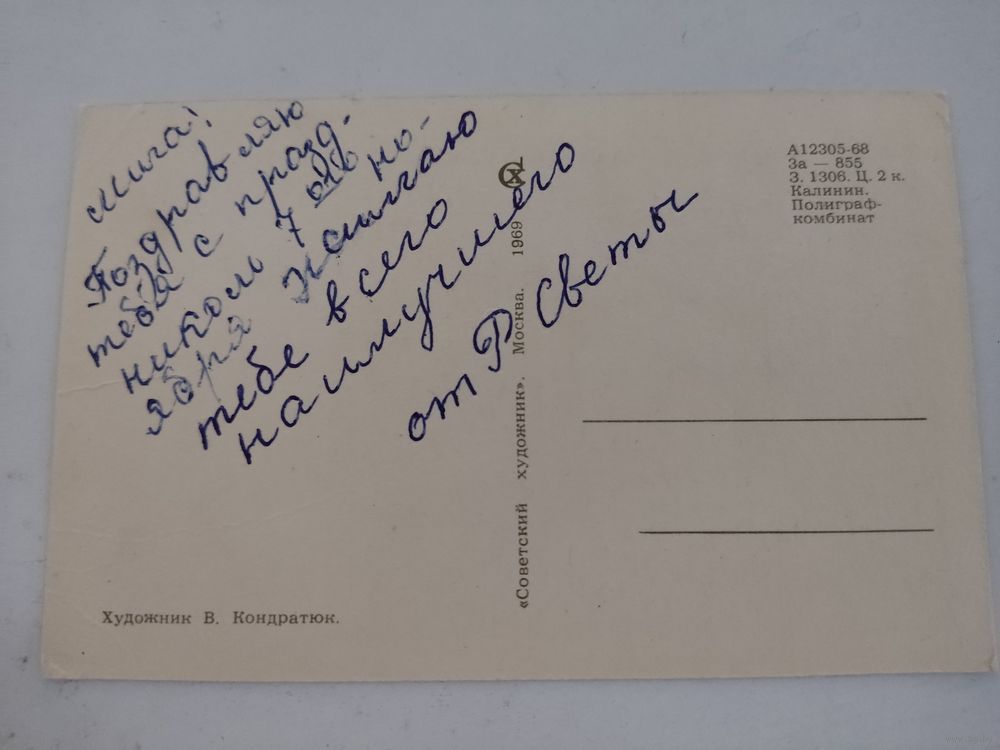 Миша!
Поздравляю
тебя с празд-
ником 7 ого но-
ября Желаю
тебе всего
наилучшего
от Р Светы
А12305-68
За — 855
З. 1306. Ц. 2 к.
Калинин.
Полиграф-
комбинат
«Советский художник». Москва. 1969
Художник В. Кондратюк.